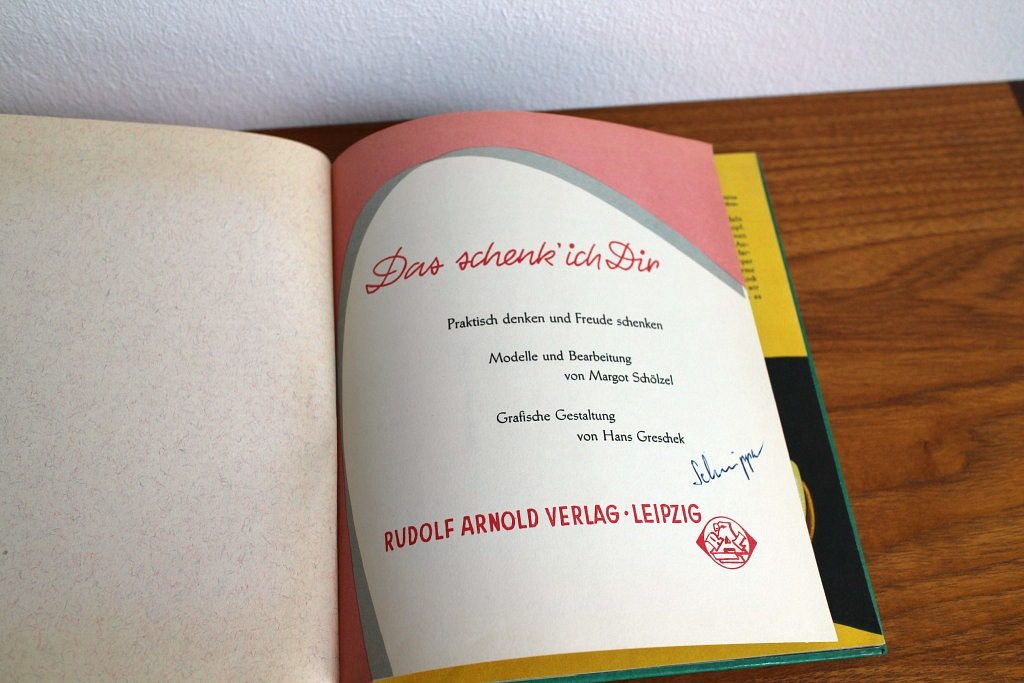 Das schenk' ich Dir
Praktisch denken und Freude schenken
Modelle und Bearbeitung
von Margot Schölzel
Grafische Gestaltung
von Hans Greschek
RUDOLF ARNOLD VERLAG · LEIPZIG